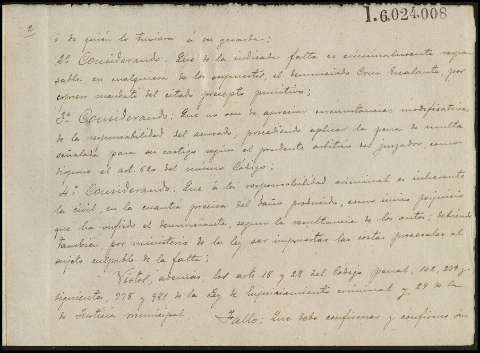 2
I.6.024.008
ó de quién lo tuviera á su guarda;
2º Considerando: Que de la indicada falta es criminalmente respon
sable, en cualquiera de los supuestos, el denunciado Cruz Escalante, por
ser autor del citado precepto punitivo;
3º Considerando: Que no son de apreciar circunstancias modificativas
de la responsabilidad del acusado, procediendo aplicar la pena de multa
señalada para su castigo segun el prudente arbitrio del juzgador, como
dispone el art. 620 del mismo Código;
4º Considerando: Que á la responsabilidad criminal es inherente
la civil, en la cuantía precisa del daño producido, como único perjuicio
que ha sufrido el denunciante, segun la resultancia de los autos; debiendo
tambien por ministerio de la ley ser impuestas las costas procesales al
sujeto culpable de la falta;
Vistos, además, los arts 18 y 28 del Código penal, 142, 239 y
siguientes, 978 y 981 de la Ley de Enjuiciamiento criminal y 29 de la
de Justicia municipal. Fallo: Que debo confirmar y confirmo